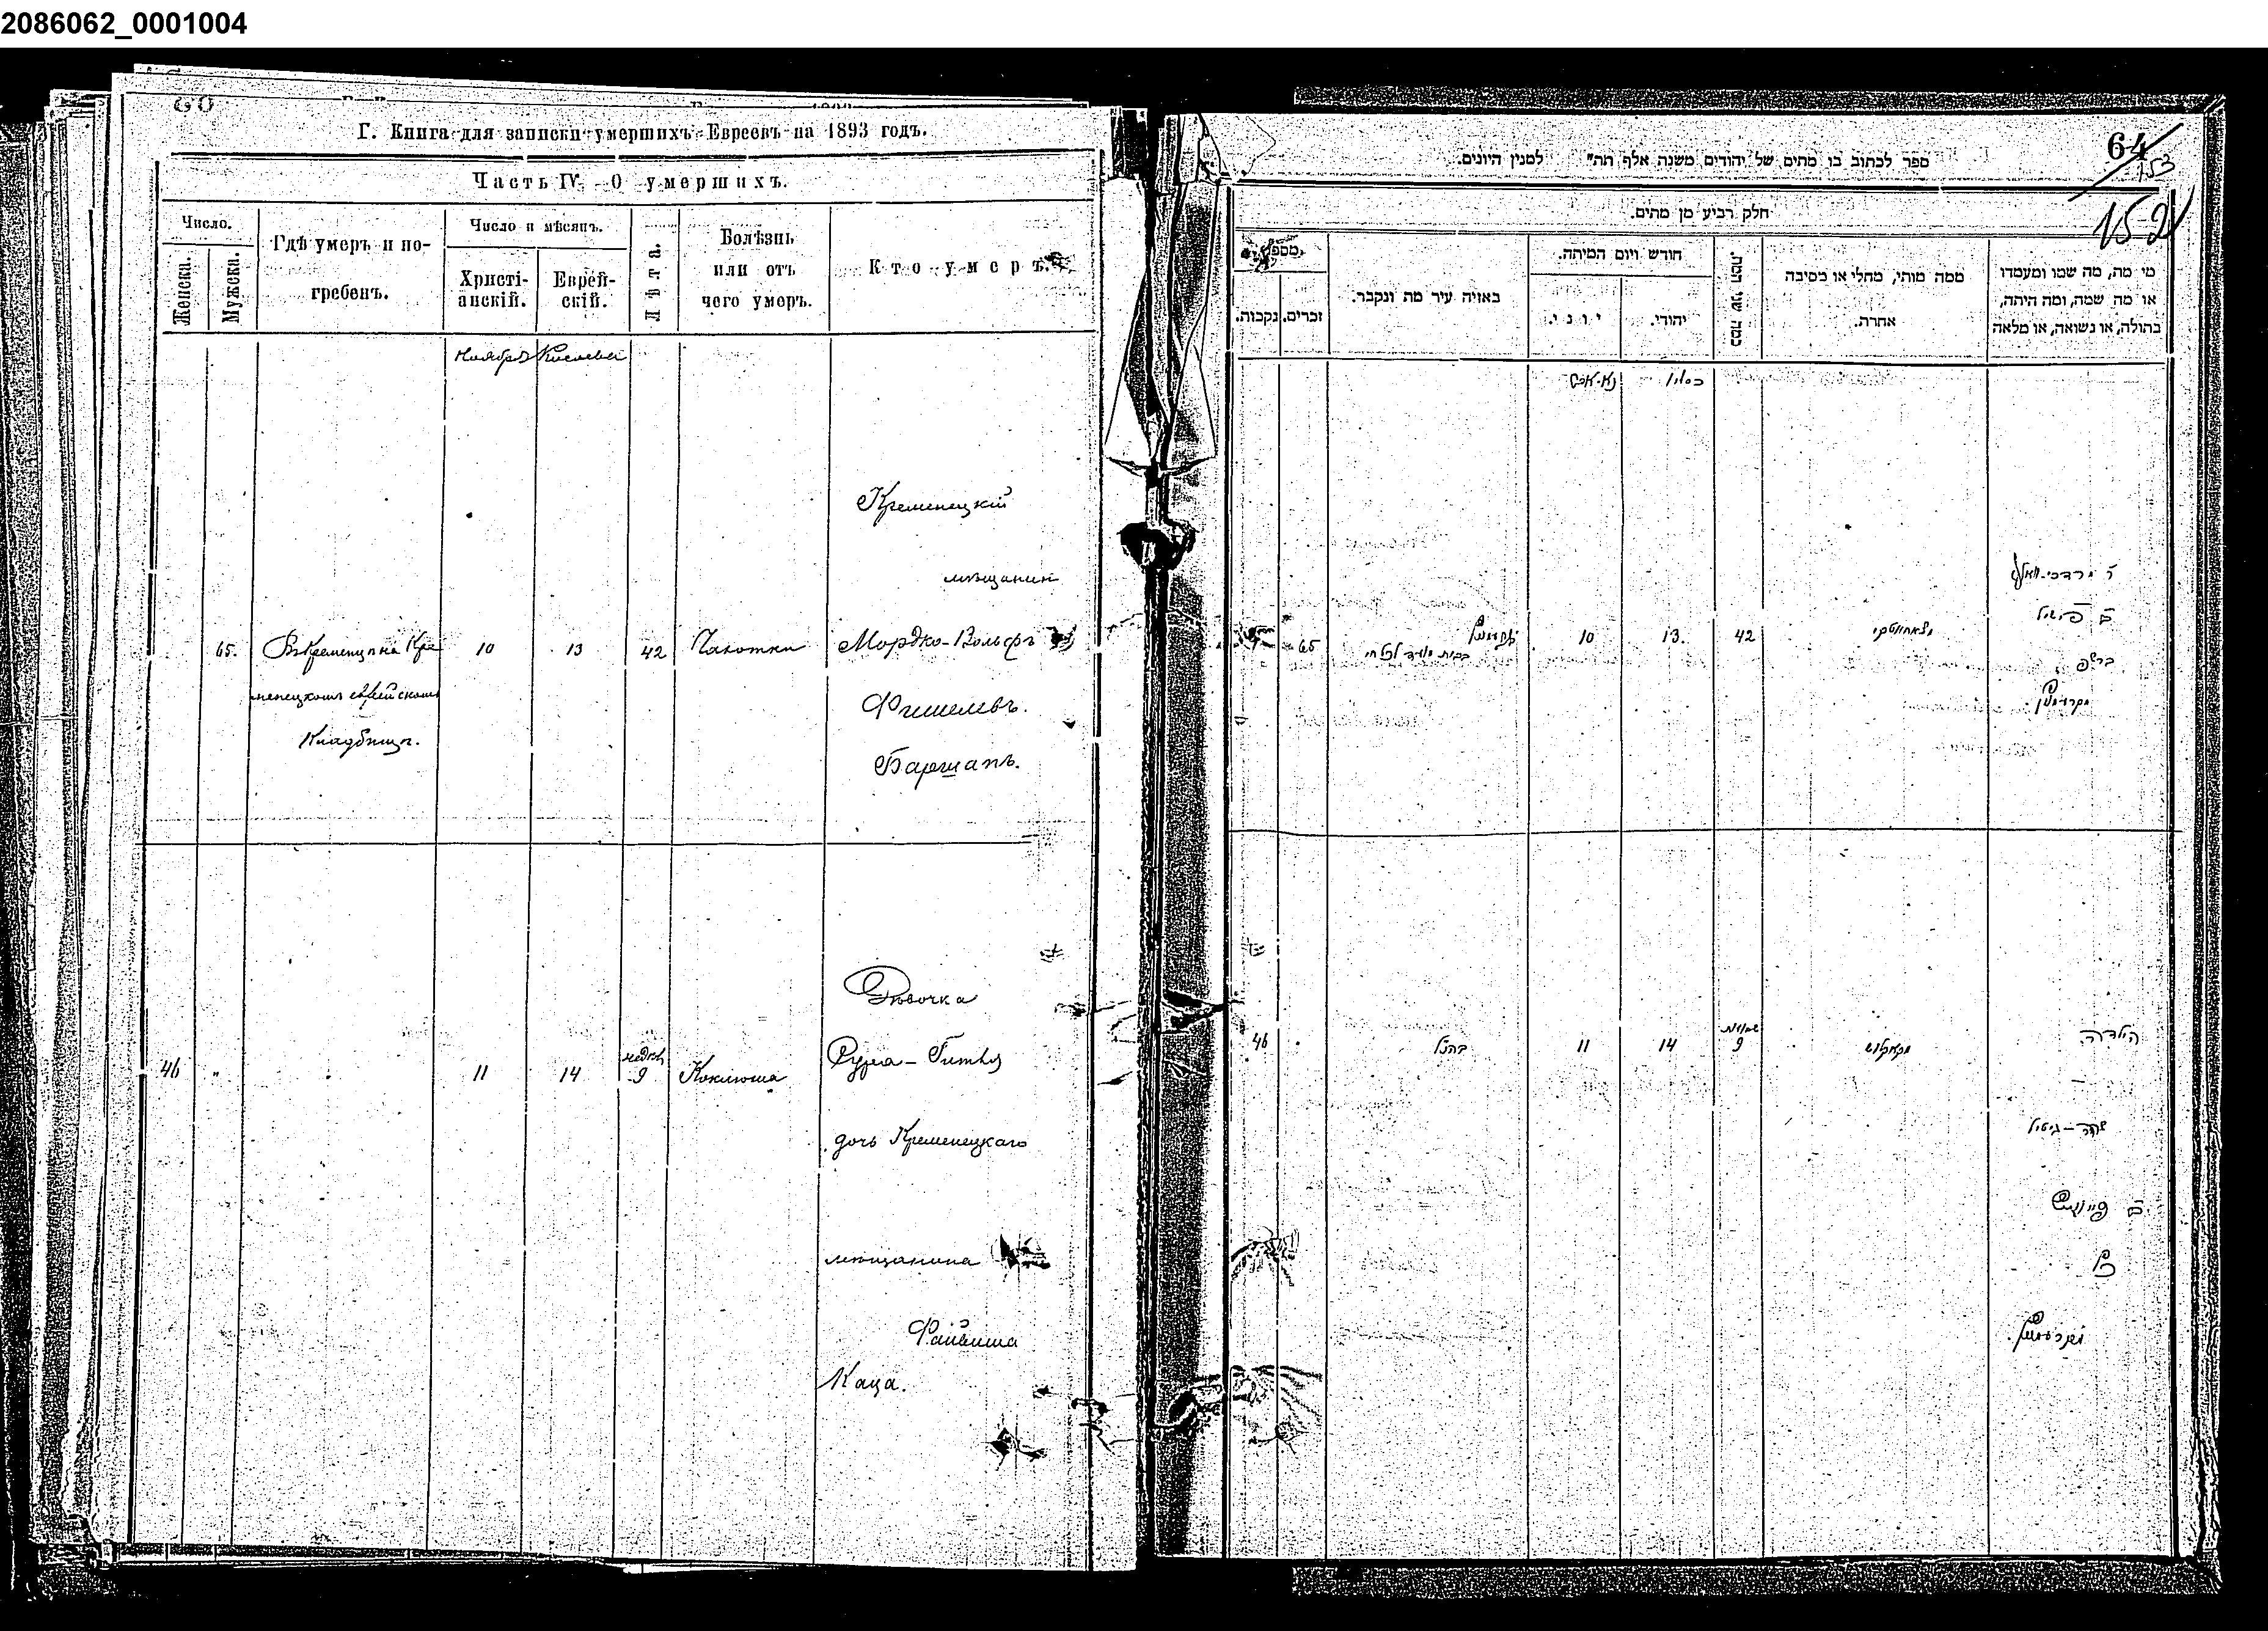 2086062_0001004
Г. Книга для записки умершихъ Евреевъ на 1893 годъ.
Часть IV. О умершихъ.
Число.
Женска.
Мужска.
Гдѣ умеръ и по-
гребенъ.
Число и мѣсяцъ.
Христі-
анскій.
Еврей-
скій.
Лѣта.
Болѣзнь
или отъ
чего умеръ.
Кто умеръ.
Ноябрь Кислевъ
65. Въ Кременцѣ на Кре
менецкомъ еврейскомъ
Кладбищѣ.
10 13 42 Чахотки
Кременецкій
мѣщанинъ
Мордко-Вольфъ
Фишелевъ.
Баршапъ.
46 " 11 14 недѣль 9 Коклюша
Дѣвочка
дочь Кременецкаго
мѣщанина
Файвиша
Каца.
64
153
152
ספר לכתוב בו מתים של יהודים משנה אלף תת" למנין היונים.
חלק רביע מן מתים.
מספר
נקבות.
זכרים.
באיזה עיר מת ונקבר.
חודש ויום המיתה.
יוני.
יהודי.
כמה שני המת.
ממה מותו, מחלי או בסיבה
אחרת.
מי מת, מה שמו ומעמדו
או מה שמה, ומה היתה,
בתולה, או נשואה, או מלאה
כסליו
65 10 13. 42
ר' מרדכי-וואלף
ב' פישיל
46 בהנ"ל 11 14 9
הילדה
ב' פייוויש
כ"ץ